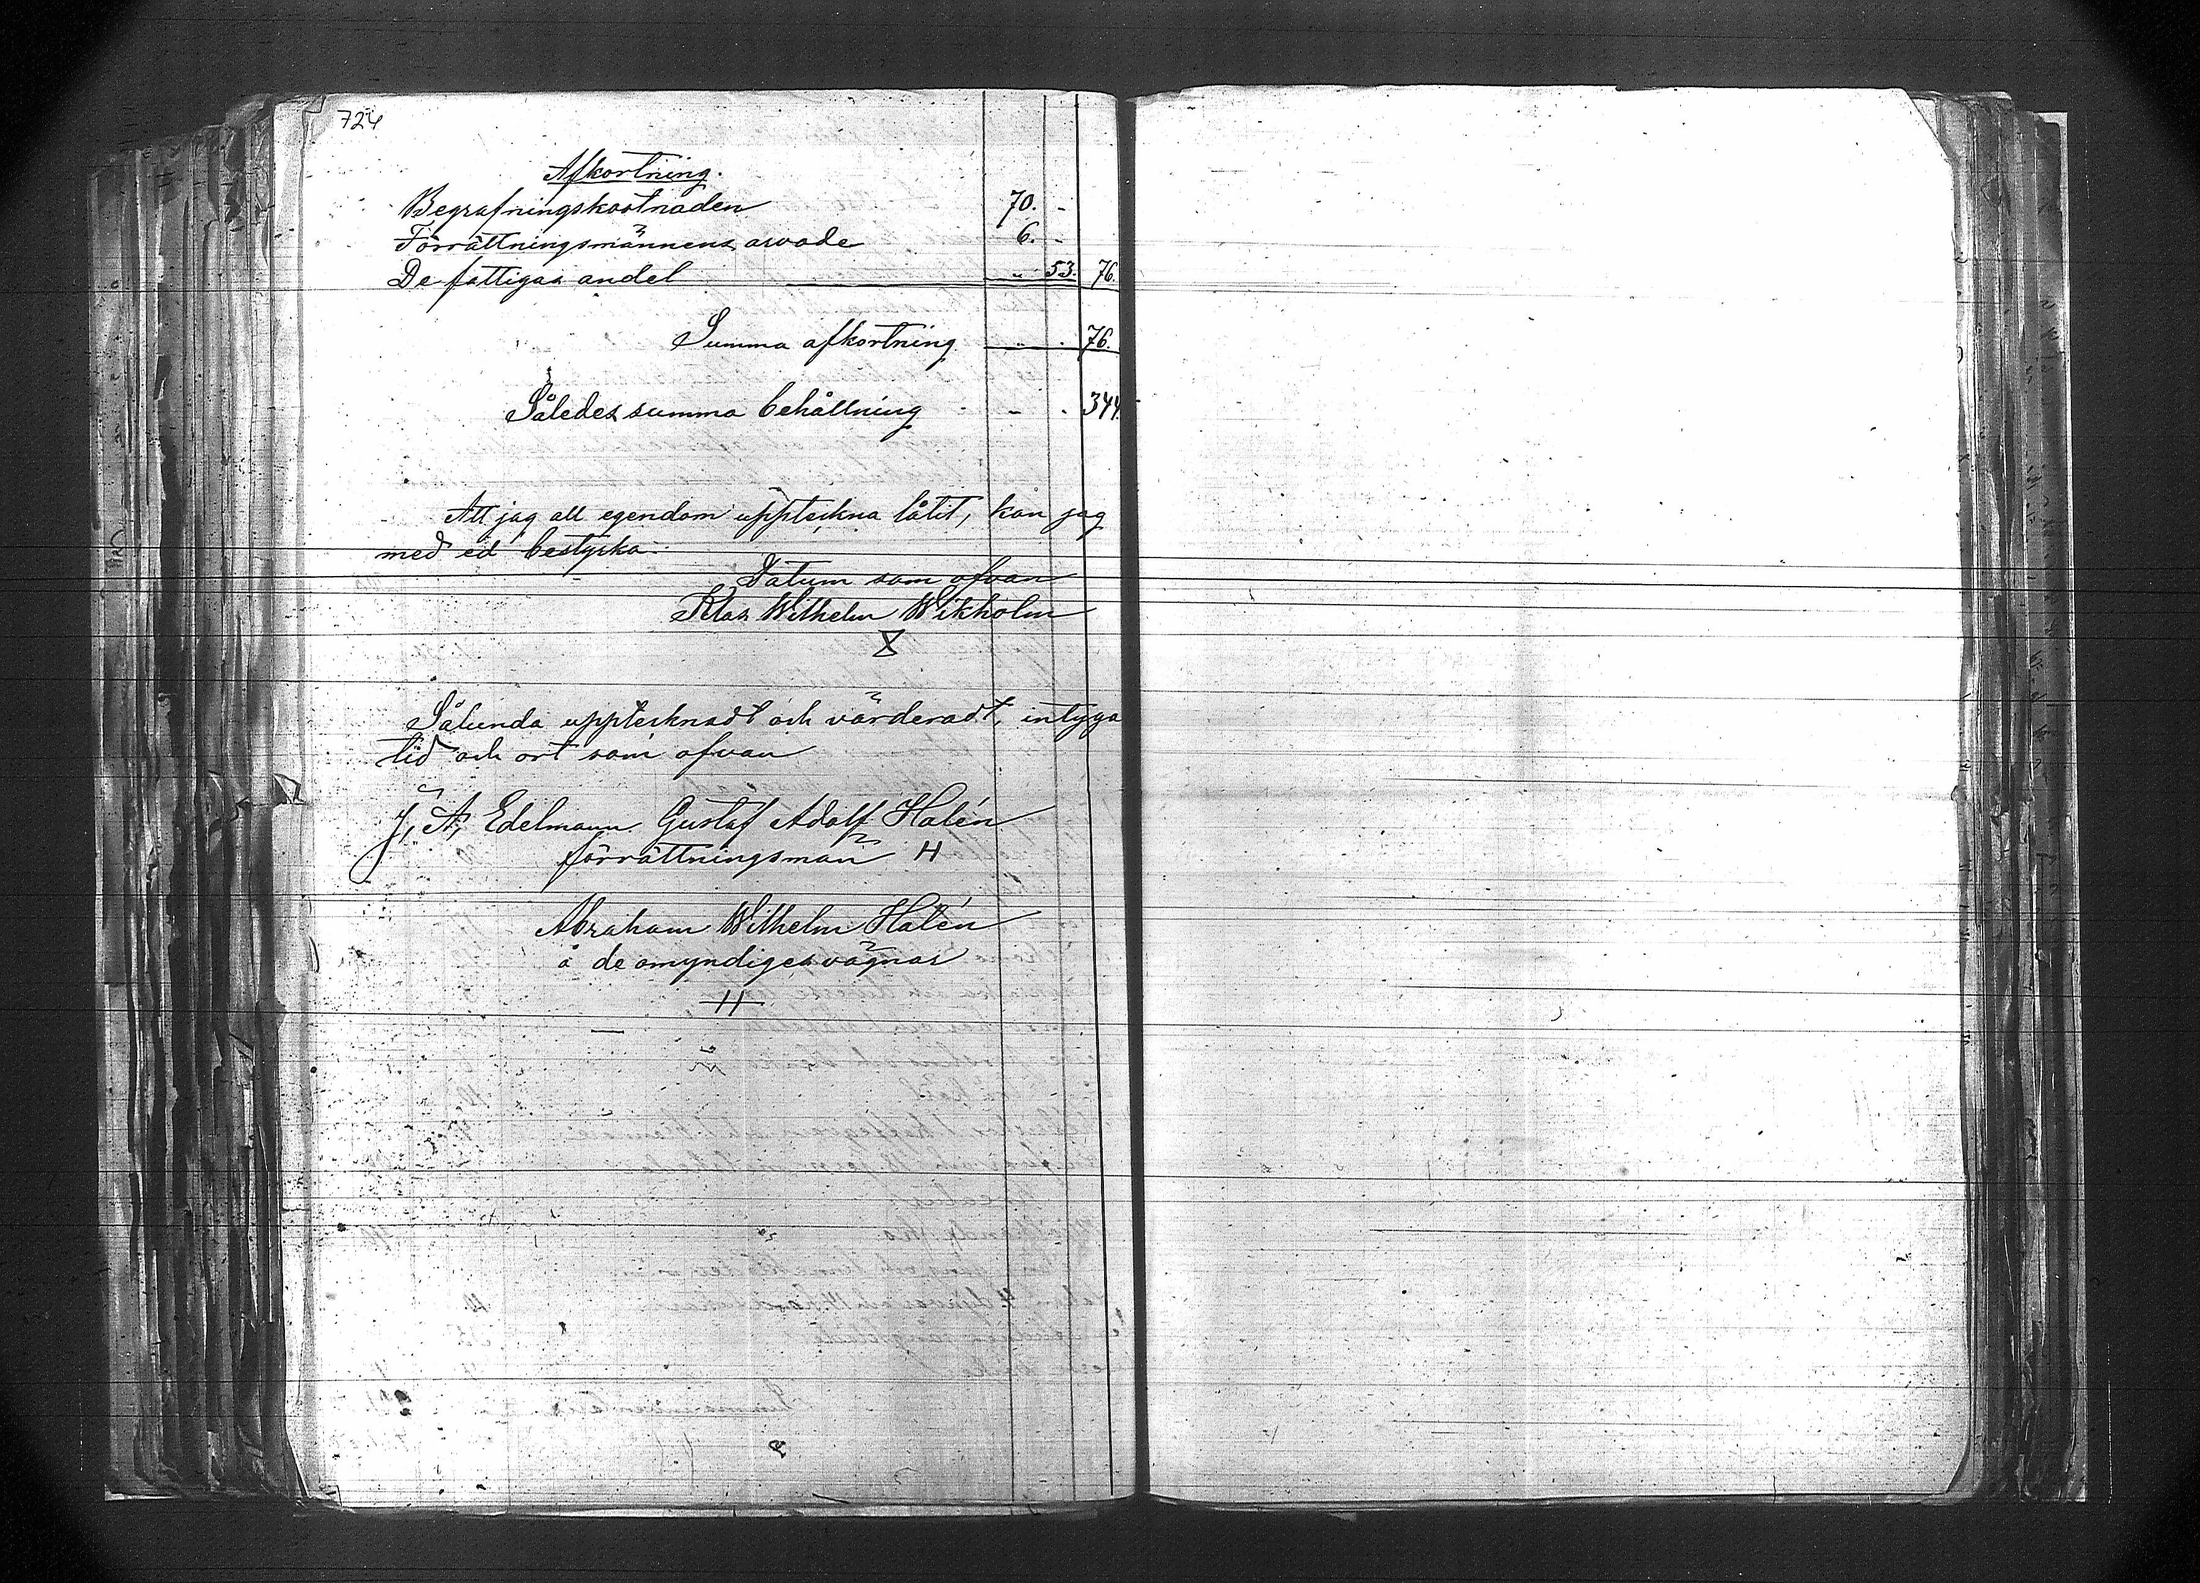 724
Afkortning.
Begrafningskostnaden 70. -
Förrättningsmännens arvode 6. -
De fattigas andel " 53. 76.
Summa afkortning " . 76.
Således summa behållning - - . 344.
Att jag all egendom uppteckna låtit, kan jag
med ed bestyrka.
Datum som ofvan
Klas Wilhelm Wikholm
X
Sålunda upptecknadt och värderadt, intyga
tid och ort som ofvan
J. A. Edelmann Gustaf Adolf Halén
förrättningsmän H
Abraham Wilhelm Halén
å de omyndiges vägnar
H